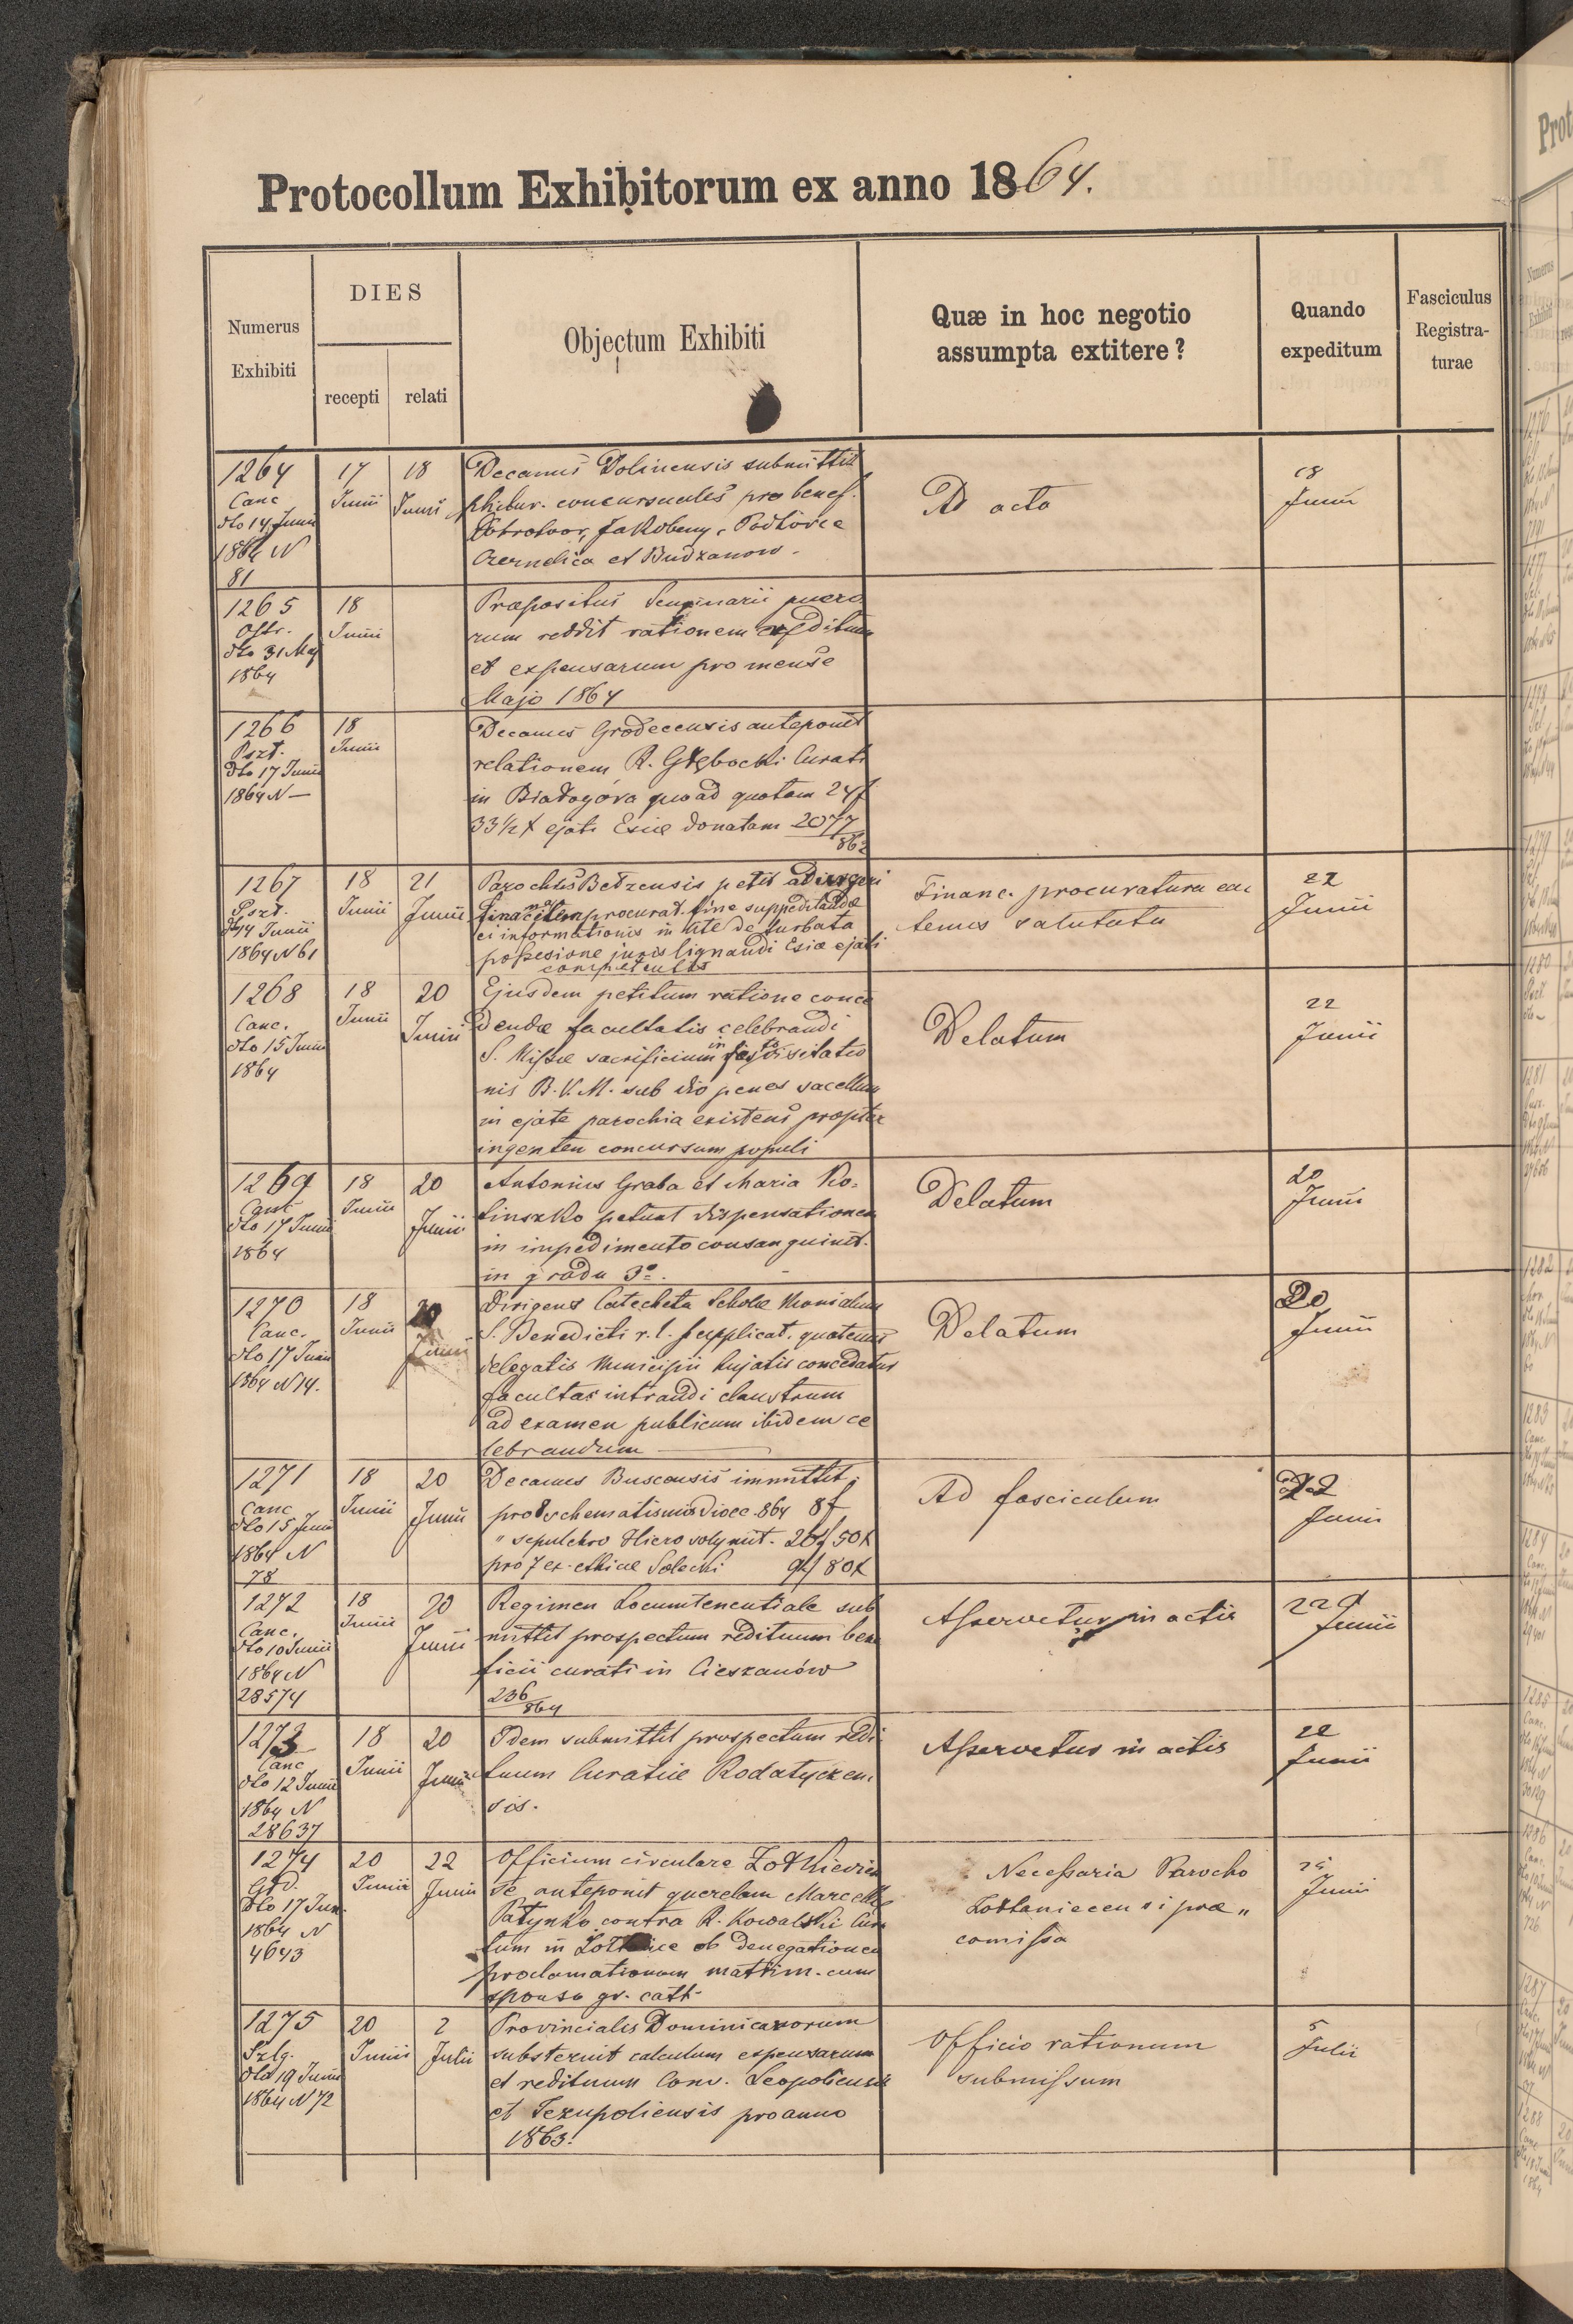 Protocollum Exhibitorum ex anno 1864.
Numerus Exhibiti
DIES
recepti relati
Objectum Exhibiti
Quæ in hoc negotio
assumpta extitere?
Quando
expeditum
Fasciculus
Registra-
turae
1264
Canc
dto 14 Junii
1864 N
81
17
Junii
18
Junii
Decanus Dolinensis submittit
concursuales pro benef.
Jakobeny,
Czernelica et Budzanow.
Ad acta
18
Junii
1265
Ostr.
dto 31 Maj
1864
18
Junii
Præpositus Seminarii puero
rum reddit rationem
et expensarum pro mense
Majo 1864
1266
Pszt.
dto 17 Junii
1864 N —
18
Junii
Decanus Grodecensis anteponit
relationem R. Głębocki Curati
in Białogóra quoad quotam 24 f
33 1/2 x ejati Esiæ donatam 2077/862
1267
Pszt.
14 Junii
1864 N 61
18
Junii
21
Junii
Parochus Bełzensis petit
procurat. fine suppeditandæ
ei informationis in lite de turbata
possesione juris lignandi Esiæ ejati
competentis
Financ. procuratura ea
tenus salutata
22
Junii
1268
Canc.
dto 15 Junii
1864
18
Junii
20
Junii
Ejusdem petitum ratione conce
dendæ facultatis celebrandi
S. Missæ sacrificium in festo visitatio
nis B.V.M. sub dio penes sacellum
in ejate parochia existens propter
ingentem concursum populi
Delatum
22
Junii
1269
Cant
dto 17 Junii
1864
18
Junii
20
Junii
Antonius Graba et Maria Ko=
linszko petunt dispensationem
in impedimento consanguinit.
in gradu 3º.
Delatum
20
Junii
1270
Canc.
dto 17 Junii
1864 N 14.
18
Junii
20
Junii
Dirigens Catecheta Scholæ Monialium
S. Benedicti r. l. supplicat. quatenus
delegatis Municipii hujatis concedatur
facultas intrandi claustrum
ad examen publicum ibidem ce
lebrandum
Delatum
20
Junii
1271
Canc
dto 15 Junii
1864 N
78
18
Junii
20
Junii
Decanus Buscensis immittit:
pro schematismis dioec. 864 8 f
" sepulchro Hierosolymit. 20 f 50 x
pro 7 ex. ethicæ Solecki 9 f 80 x
Ad fasciculum
22
Junii
1272
Canc.
dto 10 Junii
1864 N
28574
18
Junii
20
Junii
Regimen Locumtenentiale sub
mittit prospectum redituum bene
ficii curati in Cieszanów
236/864
Asservetur in actis
22
Junii
1273
Canc
dto 12 Junii
1864 N
28637
18
Junii
20
Junii
Idem submittit prospectum redi
tuum Curatiæ Rodatyczen
sis.
Asservetur in actis
22
Junii
1274
Grd.
dto 17 Jun.
1864 N
4643
20
Junii
22
Junii
Officium circulare Zołkievien
se anteponit querelam Marcelli
Patynko contra R. Kowalski Cura
tum in ob denegationem
proclamationum matrim. cum
sponsa gr. cath.
Necessaria Parocho
Zołtaniecensi præ„
comissa
25
Junii
1275
Szlg.
dto 19 Junii
1864 N 72
20
Junii
2
Julii
Provincialis Dominicanorum
substernit calculum expensarum
et redituum Conv. Leopoliensis
et Jezupoliensis pro anno
1863.
Officio rationum
submissum
5
Julii